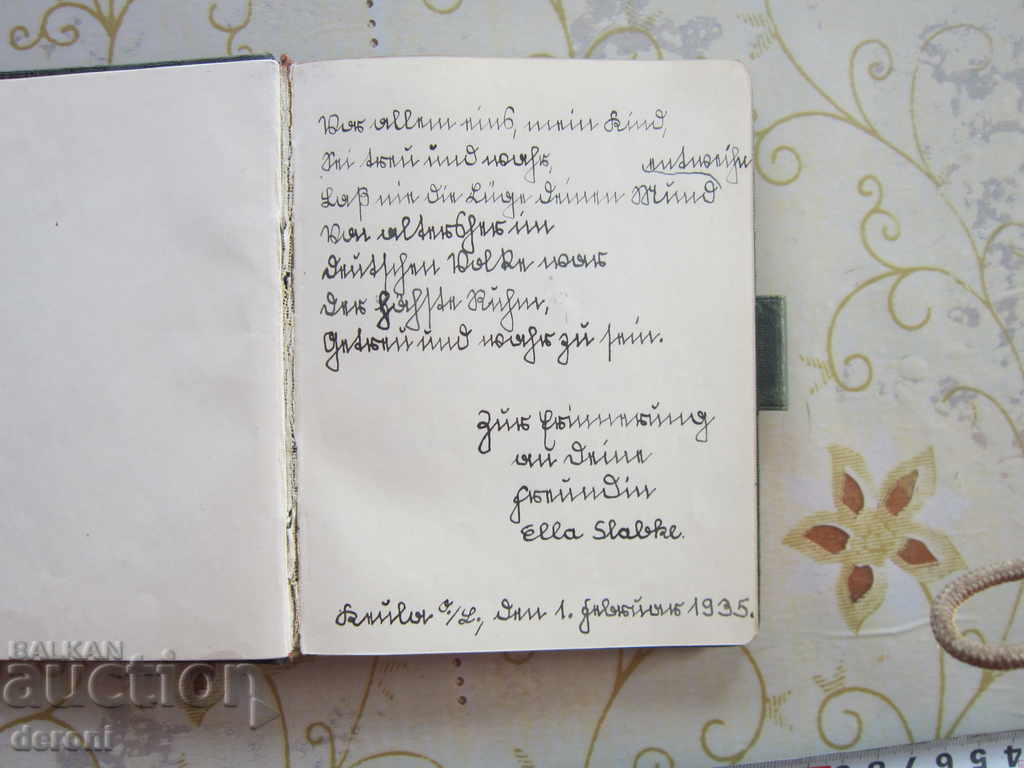 Vor allem eins, mein Kind,
Sei treu und wahr,
entweihn
Laß nie die Lüge deinen Mund
Von altersher im
deutschen Volke war
der höchste Ruhm,
Getreu und wahr zu sein.
Zur Erinnerung
an Deine
Freundin
Ella Slabke.
Keula O./L., den 1. Februar 1935.
BALKAN
auction
deroni
4 5 6 7 8